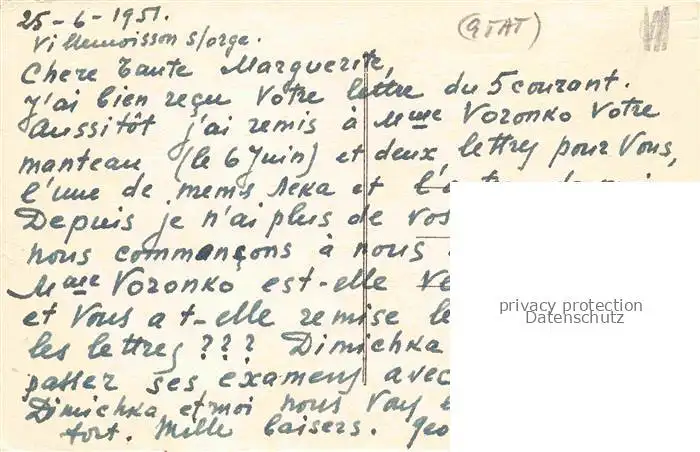 25-6-1951.
(GTAT)
Villemoisson s/orge.
Chere tante Marguerite,
j'ai bien reçu Votre lettre du 5 courant.
Aussitôt j'ai remis à Mme Voronko Votre
manteau (le 6 Juin) et deux lettres pour Vous,
l'une de
Depuis je n'ai plus de vos
nous commançons à nous
Mme Voronko est-elle
et Vous a t-elle remise le
les lettres ??? Dimichka
passer ses examens avec
Dimichka et moi nous Vous
fort. Mille baisers. Geo
privacy protection
Datenschutz